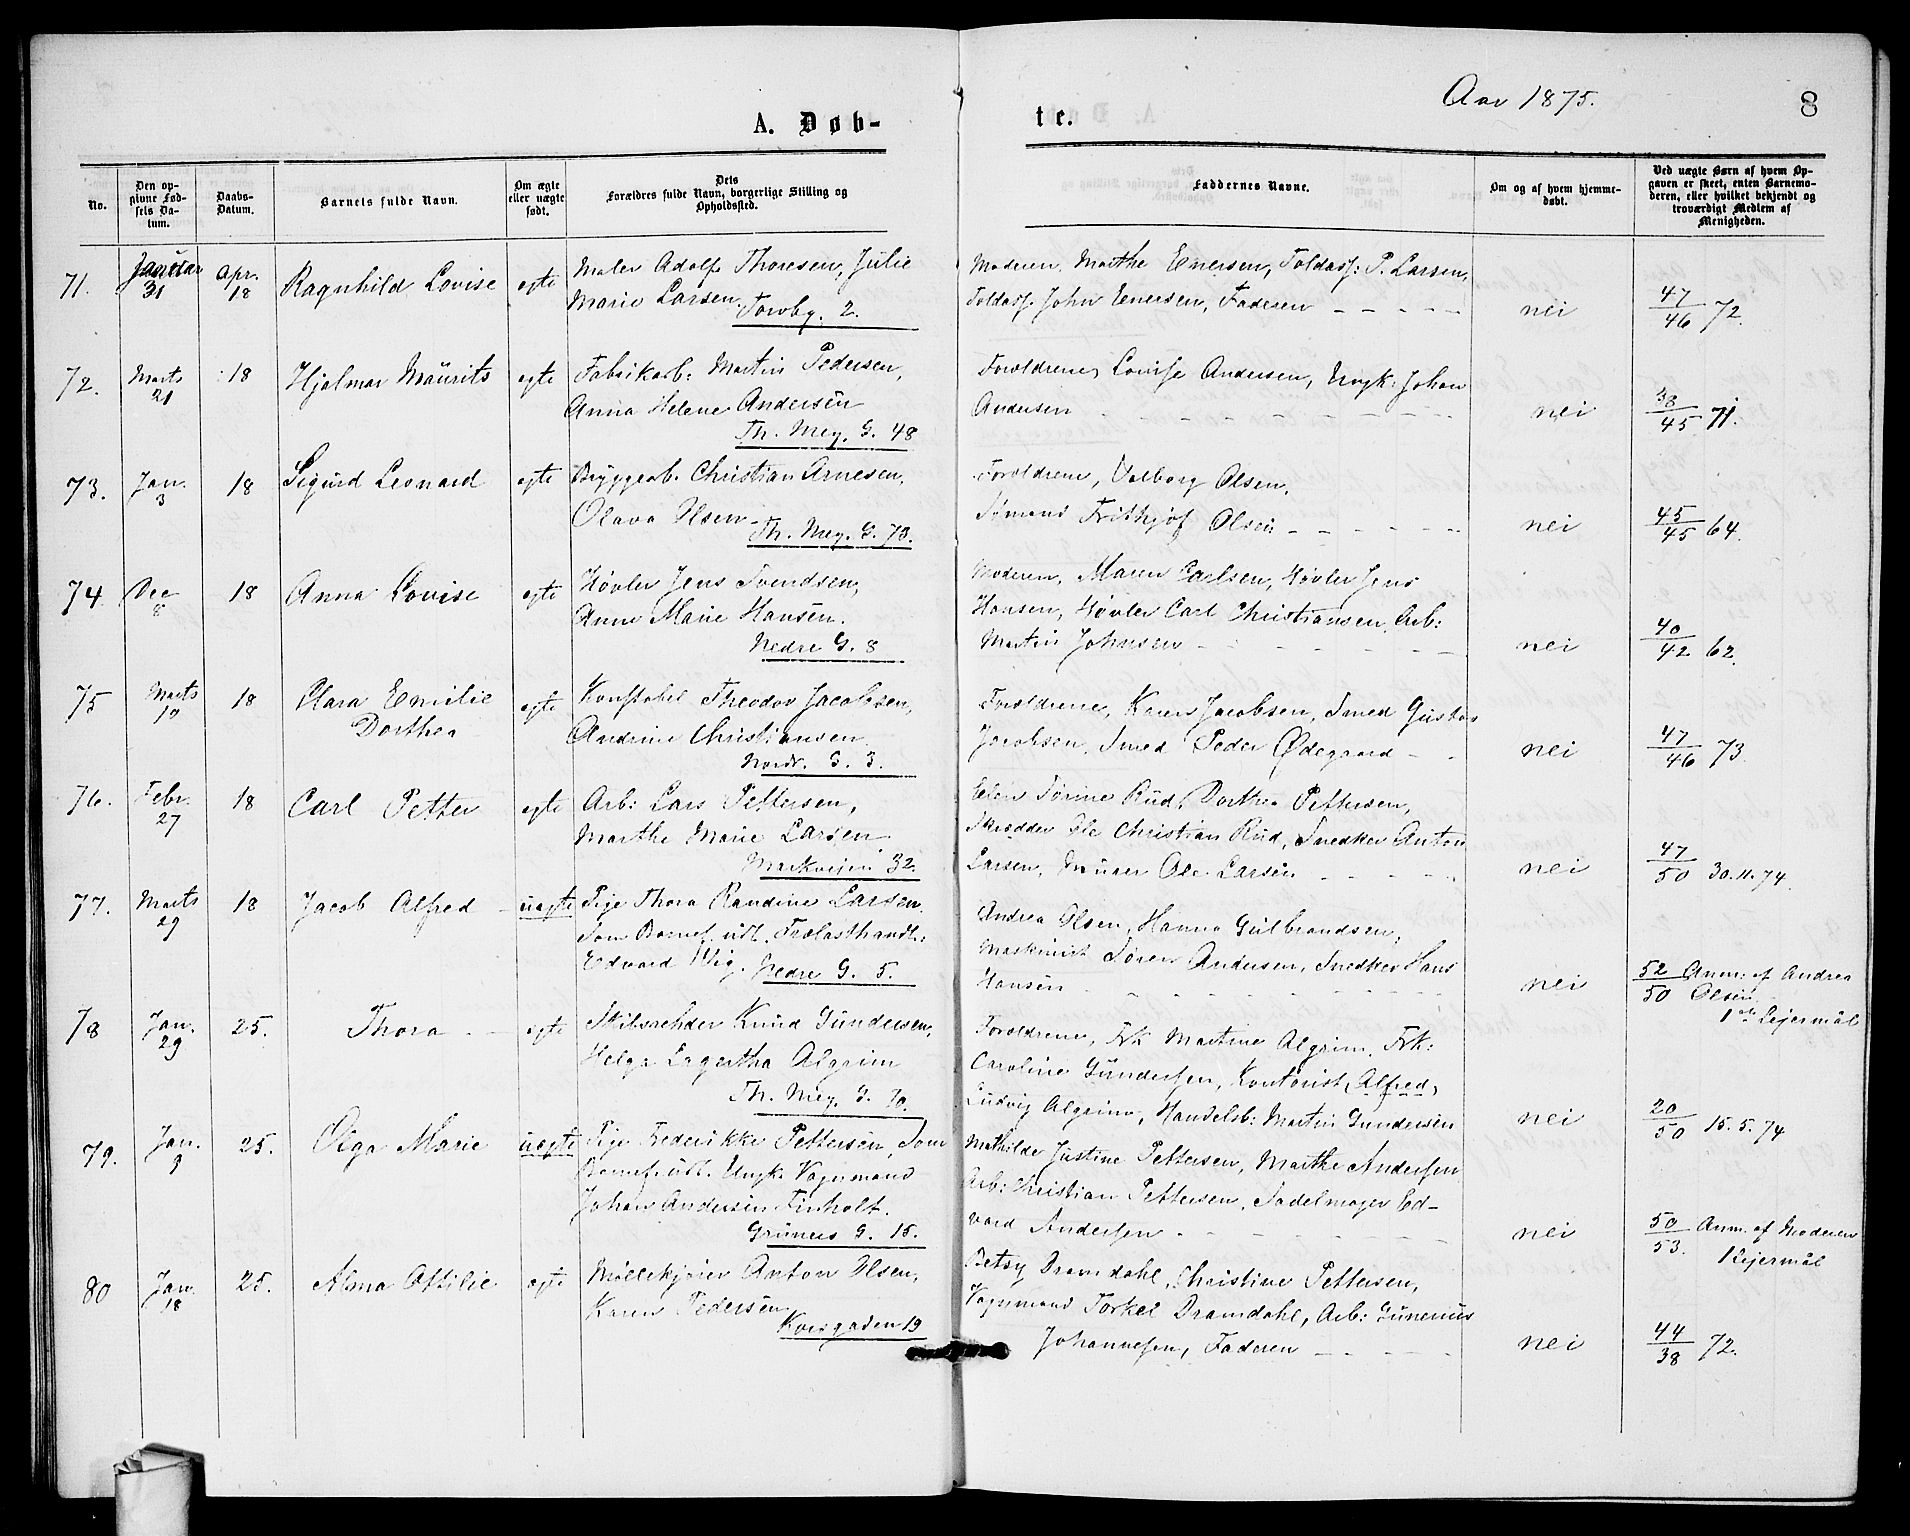 Aar 1875.
8
A. Døb-
te.
No.
Den op-
givne Fød-
sels Da-
tum.
Daabs-
Datum.
Barnets fulde Navn.
Om ægte
eller uægte
født.
Dets
Forældres fulde Navn, borgerlige Stilling og
Opholdssted.
Faddernes Navne.
Om og af hvem hjemme-
døbt.
Ved uægte Børn af hvem Op-
gaven er skeet, enten Barnemo-
deren, eller hvilket bekjendt og
troværdigt Medlem af
Menigheden.
71. Januar 31 Apr. 18 Ragnhild Lovise egte Maler Adolf Thoresen, Julie
Marie Larsen. Torvbg. 2.
Moderen, Marthe Enersen, Toldass: P. Larsen,
Toldass. John Enersen, Faderen - - - - - nei 47/46 72.
72. Marts 21 18 Hjalmar Maurits egte Fabrikarb: Martin Pedersen,
Anna Helene Andersen
Th. Mey. G. 48
Forældrene, Lovise Andersen, Ungk: Johan
Andersen nei 38/45 71.
73. Jan. 3 18 Sigurd Leonard egte Bryggearb. Christian Arnesen,
Olava Olsen
Th. Mey. G. 73.
Forældrene, Valborg Olsen,
Sømand Frithjof Olsen - - - - - nei 45/45 64.
74. Dec 8 18 Anna Lovise egte Høvler Jens Svendsen,
Anne Marie Hansen.
Nedre G. 8
Moderen, Maren Carlsen, Høvler Jens
Hansen, Høvler Carl Christiansen, Arb:
Martin Johnsen - - - - - nei 40/42 62.
75 Marts 10 18 Clara Emilie
Dorthea egte Konstabel Theodor Jacobsen,
Andrine Christiansen
Nordr. G. 3.
Forældrene, Karen Jacobsen, Smed Gustav
Jacobsen, Smed Peder Ødegaard - - nei 47/46 73.
76. Febr. 27 18 Carl Petter egte Arb: Lars Pettersen,
Marthe Marie Larsen
Markveien 32.
Elen Tørine Rud, Dorthea Pettersen,
Skrædder Ole Christian Rud, Snedker Anton
Larsen, Murer Ole Larsen - - - - - nei 47/50 30.11.74.
77. Marts 29 18 Jacob Alfred - uegte Pige Thora Randine Larsen.
Som Barnef. udl. Trælasthandl:
Edvard Wig. Nedre G. 5.
Andrea Olsen, Hanna Gulbrandsen,
Maskinist Søren Andersen, Snedker Hans
Hansen nei 52/50 Anm: af Andrea
Olsen
1ste Lejermål
78 Jan. 29 25. Thora - - egte Knud Gundersen,
Helga Lagertha Algrim
Th. Mey. G. 70.
Forældrene, Frk Martine Algrim, Frk:
Caroline Gundersen, Kontorist Alfred
Ludvig Algrim, Handelsb: Martin Gundersen nei 20/50 15.5.74
79. Jan. 9 25. Olga Marie uegte Pige Frederikke Pettersen, Som
Barnef. udl. Ungk. Vognmand
Johan Andersen Finholt.
Grüners G. 15.
Mathilde Justine Pettersen, Marthe Andersen
Arb: Christian Pettersen, Sadelmager Ed-
vard Andersen - - - - - nei 50/53. Anm. af Moderen
1 Lejermål
80 Jan. 18 25. Alma Ottilie egte Møllekjører Anton Olsen,
Karen Pedersen
Korsgaden 19
Betsy Dramdahl, Christine Pettersen,
Vognmand Torkel Dramdahl, Arb: Gunerius
Johannesen, Faderen - - - - nei 44/38 72.